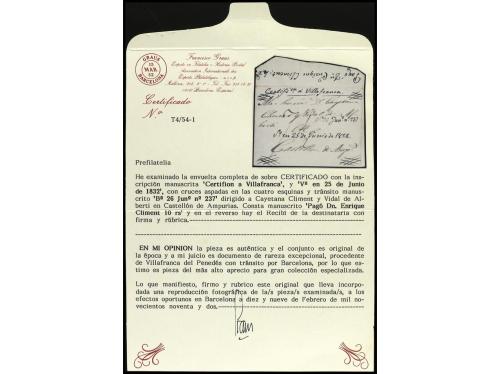 GRAUS
15 MAR 82
BARCELONA
Francisco Graus
Experto en Filatelia e Historia Postal
Association Internationale des
Experts Philatéliques - a.i.e.p.
Barcelona (España)
Certificado
N.º T4/54-1
Certificón a Villafranca
Vª en 25 de Junio de 1832
Prefilatelia
He examinado la envuelta completa de sobre CERTIFICADO con la ins-
cripción manuscrita 'Certifion a Villafranca', y 'Vª en 25 de Junio
de 1832', con cruces aspadas en las cuatro esquinas y tránsito manus-
crito 'Bª 26 Junº nº 237' dirigido a Cayetana Climent y Vidal de Al-
berti en Castellón de Ampurias. Consta manuscrito 'Pagó Dn. Enrique
Climent 10 rs' y en el reverso hay el Recibí de la destinataria con
firma y rúbrica.
EN MI OPINION la pieza es auténtica y el conjunto es original de
la época y a mi juicio es documento de rareza excepcional, procedente
de Villafranca del Penedés con tránsito por Barcelona, por lo que es-
timo es pieza del más alto aprecio para gran colección especializada.
Lo que manifiesto, firmo y rubrico este original que lleva incorpo-
rada una reproducción fotográfica de la/s pieza/s examinada/s, a los
efectos oportunos en Barcelona a diez y nueve de Febrero de mil no-
vecientos noventa y dos.